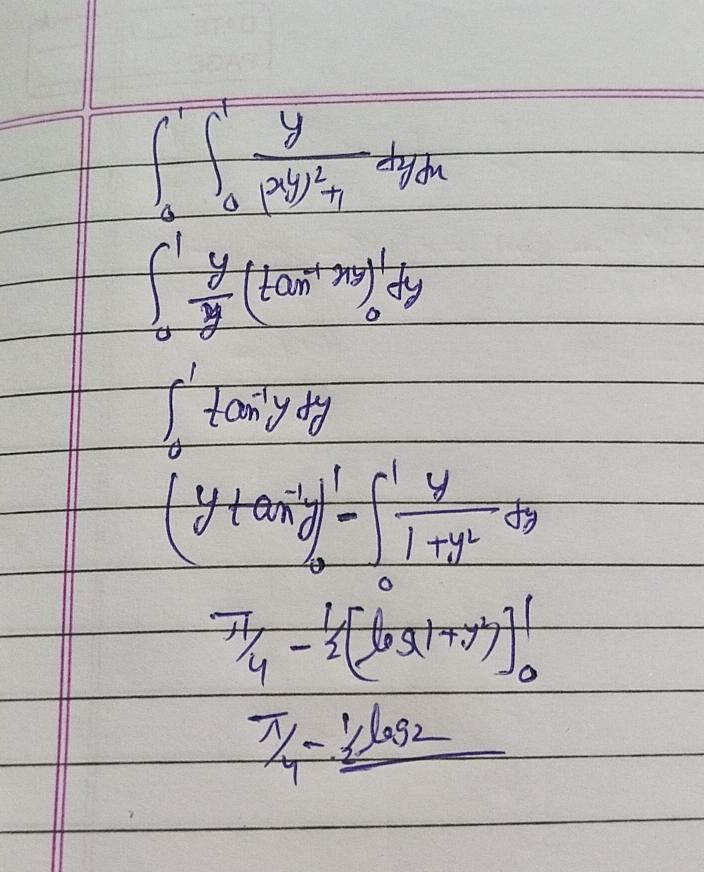 ∫₀¹ ∫₀¹ y/((xy)²+1) dy dx
∫₀¹ y/y (tan⁻¹ xy)₀¹ dy
∫₀¹ tan⁻¹y dy
(y tan⁻¹y)₀¹ - ∫₀¹ y/(1+y²) dy
π/4 - 1/2[log(1+y²)]₀¹
π/4 - 1/2 log2